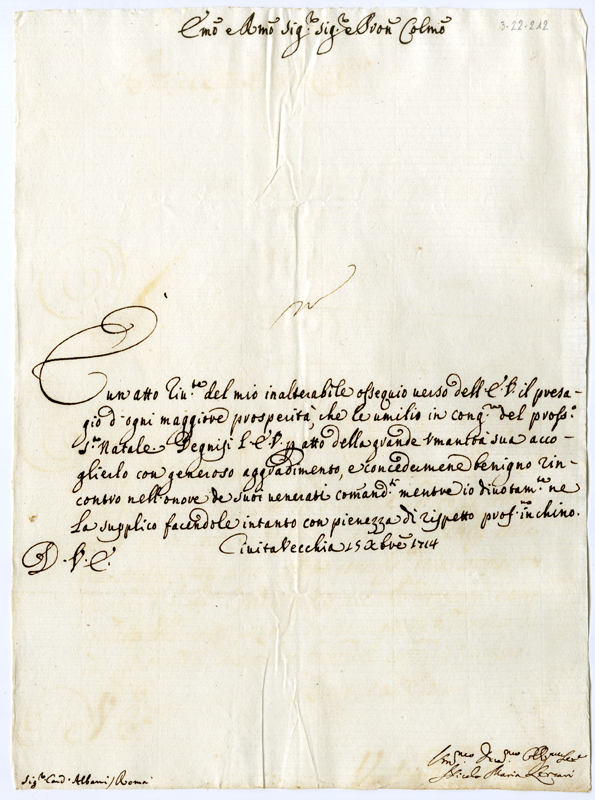 Emõ e Rmõ Sig.re Sig.re e Pron Colmõ
3-22-212
È un atto riu.te del mio inalterabile ossequio verso dell'E.V. il presa-
gio d'ogni maggiore prosperità, che le umilio in cong.ra del pross.o
S.to Natale. Degnisi L'E.V. p atto della grande umanità sua acco-
glierlo con generoso aggradimento, e concedermene benigno rin-
contro nell'onore de suoi venerati comand.ti mentre io diuotam.te ne
La supplico facendole intanto con pienezza di rispetto prof.mo inchino.
Ciuita Vecchia 15 Xbrẽ 1714
D. V. E.
Sig.r Card. Albani / Roma
Nicolò Maria Lercari